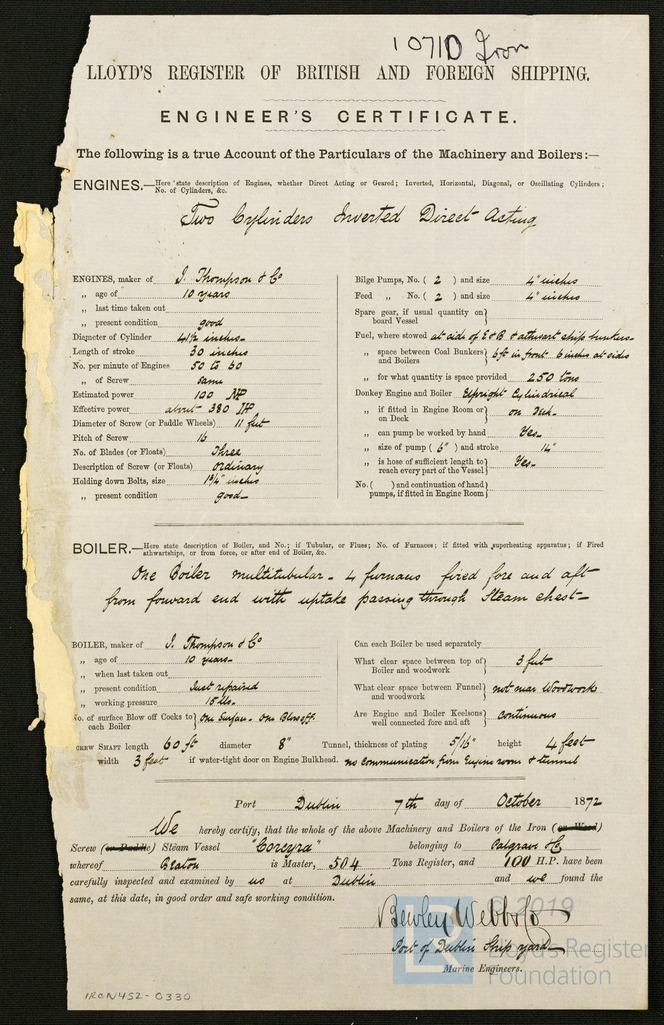 1071D Iron
LLOYD'S REGISTER OF BRITISH AND FOREIGN SHIPPING.
ENGINEER'S CERTIFICATE.
The following is a true Account of the Particulars of the Machinery and Boilers:—
ENGINES.—Here state description of Engines, whether Direct Acting or Geared; Inverted, Horizontal, Diagonal, or Oscillating Cylinders;
No. of Cylinders, &c.
Two Cylinders Inverted Direct Acting
ENGINES, maker of J. Thompson & Co
„ age of 10 years
„ last time taken out
„ present condition good
Diameter of Cylinder 41½ inches
Length of stroke 30 inches
No. per minute of Engines 50 to 60
„ of Screw same
Estimated power 100 NP
Effective power about 380 HP
Diameter of Screw (or Paddle Wheels) 11 feet
Pitch of Screw 16
No. of Blades (or Floats) Three
Description of Screw (or Floats) Ordinary
Holding down Bolts, size 1¾" inches
„ present condition good
Bilge Pumps, No. ( 2 ) and size 4" inches
Feed „ No. ( 2 ) and size 4" inches
Spare gear, if usual quantity on
board Vessel
Fuel, where stowed at side of E & B & athwart ship bunkers
„ space between Coal Bunkers
and Boilers 6ft in front 6 inches at sides
„ for what quantity is space provided 250 tons
Donkey Engine and Boiler Upright Cylindrical
„ if fitted in Engine Room or
on Deck on Deck
„ can pump be worked by hand Yes
„ size of pump ( 6" ) and stroke 14"
„ is hose of sufficient length to
reach every part of the Vessel Yes
No. ( ) and continuation of hand
pumps, if fitted in Engine Room
BOILER.—Here state description of Boiler, and No.; if Tubular, or Flues; No. of Furnaces; if fitted with superheating apparatus; if Fired
athwartships, or from force, or after end of Boiler, &c.
One Boiler multitubular - 4 furnaces fired fore and aft
from forward end with uptake passing through Steam chest
BOILER, maker of J. Thompson & Co
„ age of 10 years
„ when last taken out
„ present condition Just repaired
„ working pressure 15 lbs.
No. of surface Blow off Cocks to
each Boiler One Surface - One Blow off
Can each Boiler be used separately
What clear space between top of
Boiler and woodwork 3 feet
What clear space between Funnel
and woodwork not near Woodwork
Are Engine and Boiler Keelsons
well connected fore and aft continuous
SCREW SHAFT length 60 ft diameter 8" Tunnel, thickness of plating 5/16" height 4 feet
width 3 feet if water-tight door on Engine Bulkhead. no communication from Engine room & tunnel
Port Dublin 7th day of October 1872
We hereby certify, that the whole of the above Machinery and Boilers of the Iron (or Wood)
Screw (or Paddle) Steam Vessel "Corcyra" belonging to Palgrave & Co
whereof is Master, 504 Tons Register, and 100 H.P. have been
carefully inspected and examined by us at Dublin and we found the
same, at this date, in good order and safe working condition.
Bewley Webb & Co
Port of Dublin Ship yard
Marine Engineers.
© 2019
LR Lloyd's Register
Foundation
IRON452-0330